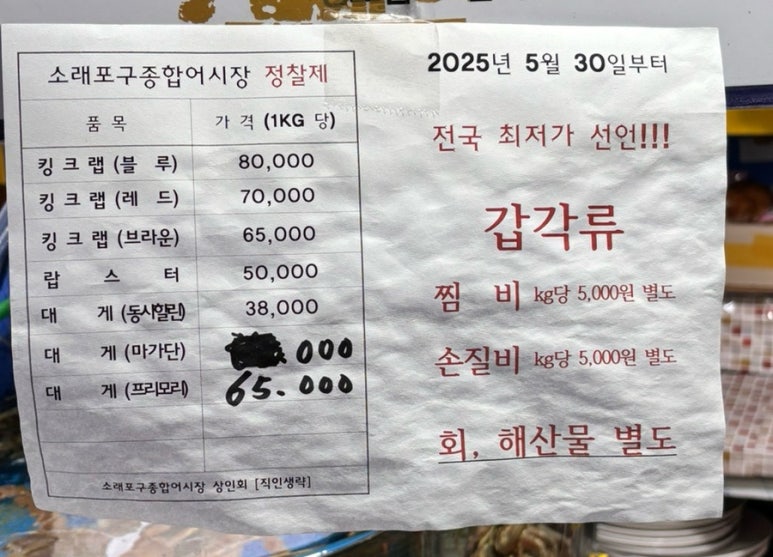 소래포구종합어시장 정찰제
품 목 가 격 (1KG 당)
킹 크 랩 (블 루) 80,000
킹 크 랩 (레 드) 70,000
킹 크 랩 (브라운) 65,000
랍 스 터 50,000
대 게 (동사할린) 38,000
대 게 (마가단) 000
대 게 (프리모리) 65.000
소래포구종합어시장 상인회 [직인생략]
2025년 5월 30일부터
전국 최저가 선언!!!
갑각류
찜 비 kg당 5,000원 별도
손질비 kg당 5,000원 별도
회, 해산물 별도